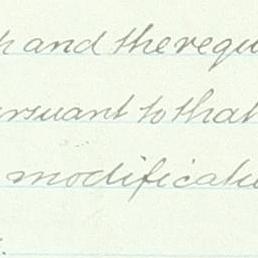 and the requ
pursuant to that
modificatio